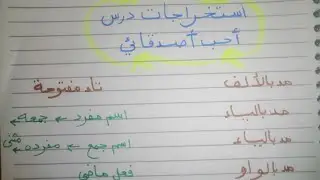 استخراجات درس
أحب أصدقائي
مد بالألف تاء مفتوحة
مد بالياء اسم مفرد ← جمعه
مد بالياء اسم جمع ← مفرده ← مثنى
مد بالواو فعل ماضي